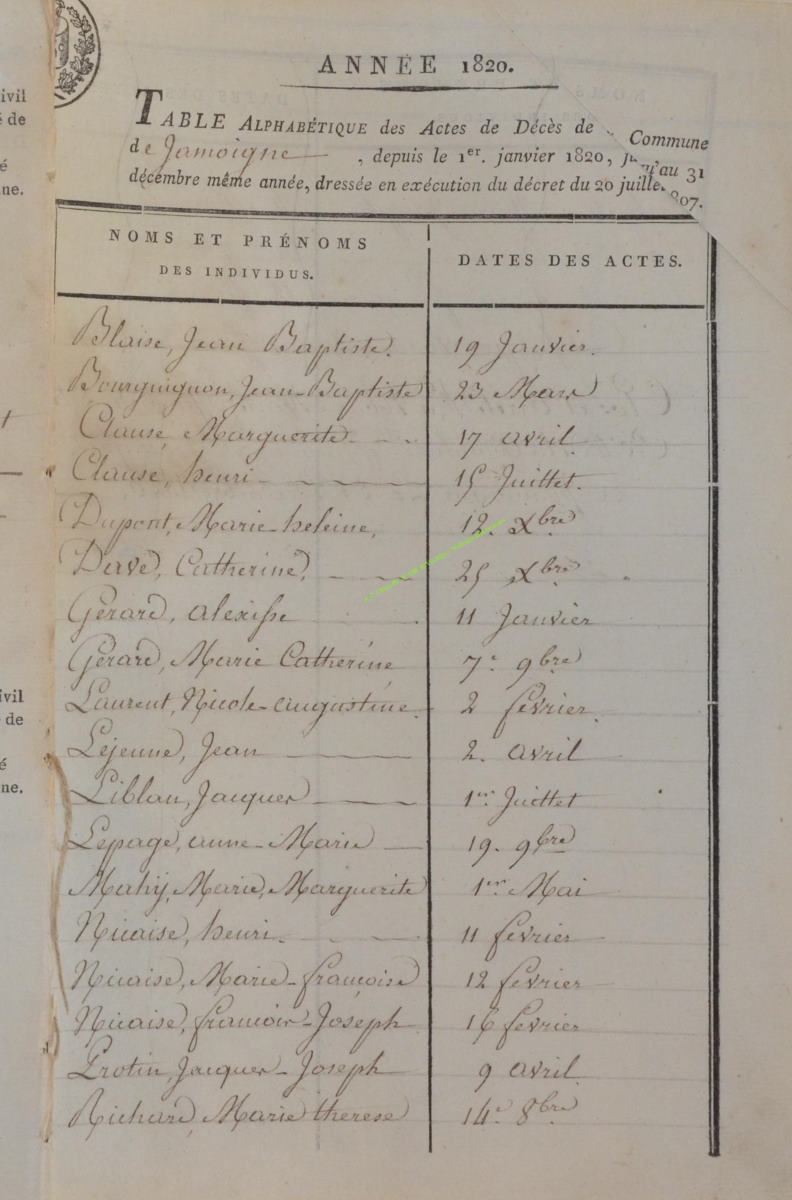 ANNÉE 1820.
TABLE ALPHABÉTIQUE des Actes de Décès de Commune
de Jamoigne, depuis le 1er. janvier 1820, au 31
décembre même année, dressée en exécution du décret du 20 juille 807.
NOMS ET PRÉNOMS
DES INDIVIDUS.
DATES DES ACTES.
Blaise, Jean Baptiste. 19 Janvier.
Bourguignon, Jean-Baptiste 23 Mars
Clause, Marguerite 17 avril
Clause, henri 15 Juillet.
Dupont, Marie heleine, 12. Xbre
Davé, Catherine, 25 Xbre
Gerard, alexisse 11 Janvier
Gerard, Marie Catherine 7e 9bre
Laurent, Nicole-augustine. 2 février.
Lejeune, Jean 2. avril
Liblan, Jacques 1er Juillet
Lepage, anne-Marie 19. 9bre
Mahy, Marie, Marguerite 1er Mai
Nicaise, henri 11 février
Nicaise, Marie-francoise 12 fevrier
Nicaise, francois-Joseph 16 fevrier
Protin, Jacques-Joseph 9 avril
Richard, Marie therese 14e 8bre
ivil
é de
é
ne.
ivil
de
é
ne.